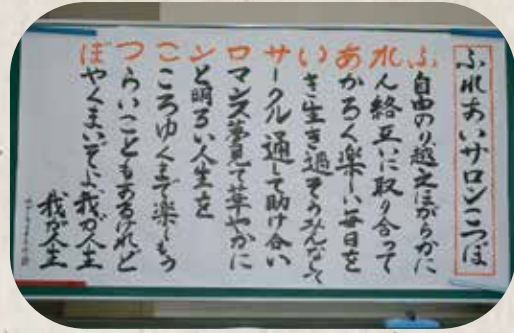 ふれあいサロンこつぼ
ふ自由のり越えほがらかに
れん絡互いに取り合って
あかるく楽しい毎日を
いき生き過そうみんなして
サークル通して助け合い
ロマンス夢見て華やかに
ンと明るい人生を
こころゆくまで楽しもう
つらいこともあるけれど
ぼやくまいぞよ我が人生
我が人生